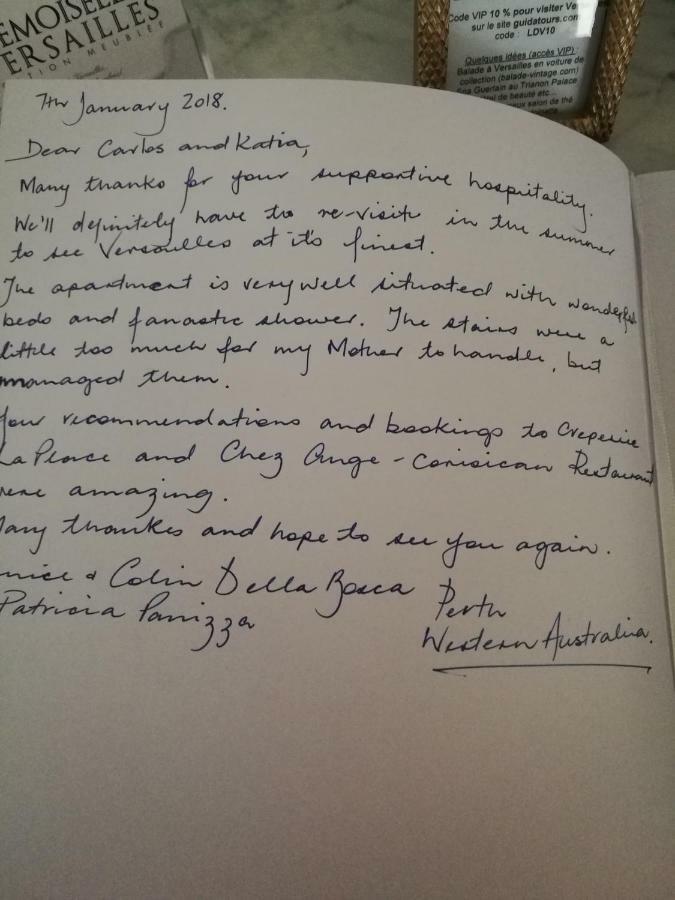 EMOISELLE
ERSAILLES
TION MEUBLÉE
Code VIP 10 % pour visiter Ve
sur le site guidatours.com
code : LDV10
Quelques idées (accès VIP) :
Balade à Versailles en voiture de
collection (balade-vintage.com)
Spa Guerlain au Trianon Palace
de beauté etc...
salon de thé
7th January 2018.
Dear Carlos and Katia,
Many thanks for your supportive hospitality.
We'll definitely have to re-visit in the summer
to see Versailles at it's finest.
The apartment is very well situated with wonderful
beds and fanastic shower. The stairs were a
little too much for my Mother to handle, but
managed them.
Your recommendations and bookings to Creperie
La Place and Chez Ange - Corisican Restaurant
were amazing.
Many thankes and hope to see you again.
nice & Colin Della Bosca
Patricia Panizza
Perth
Western Australia.